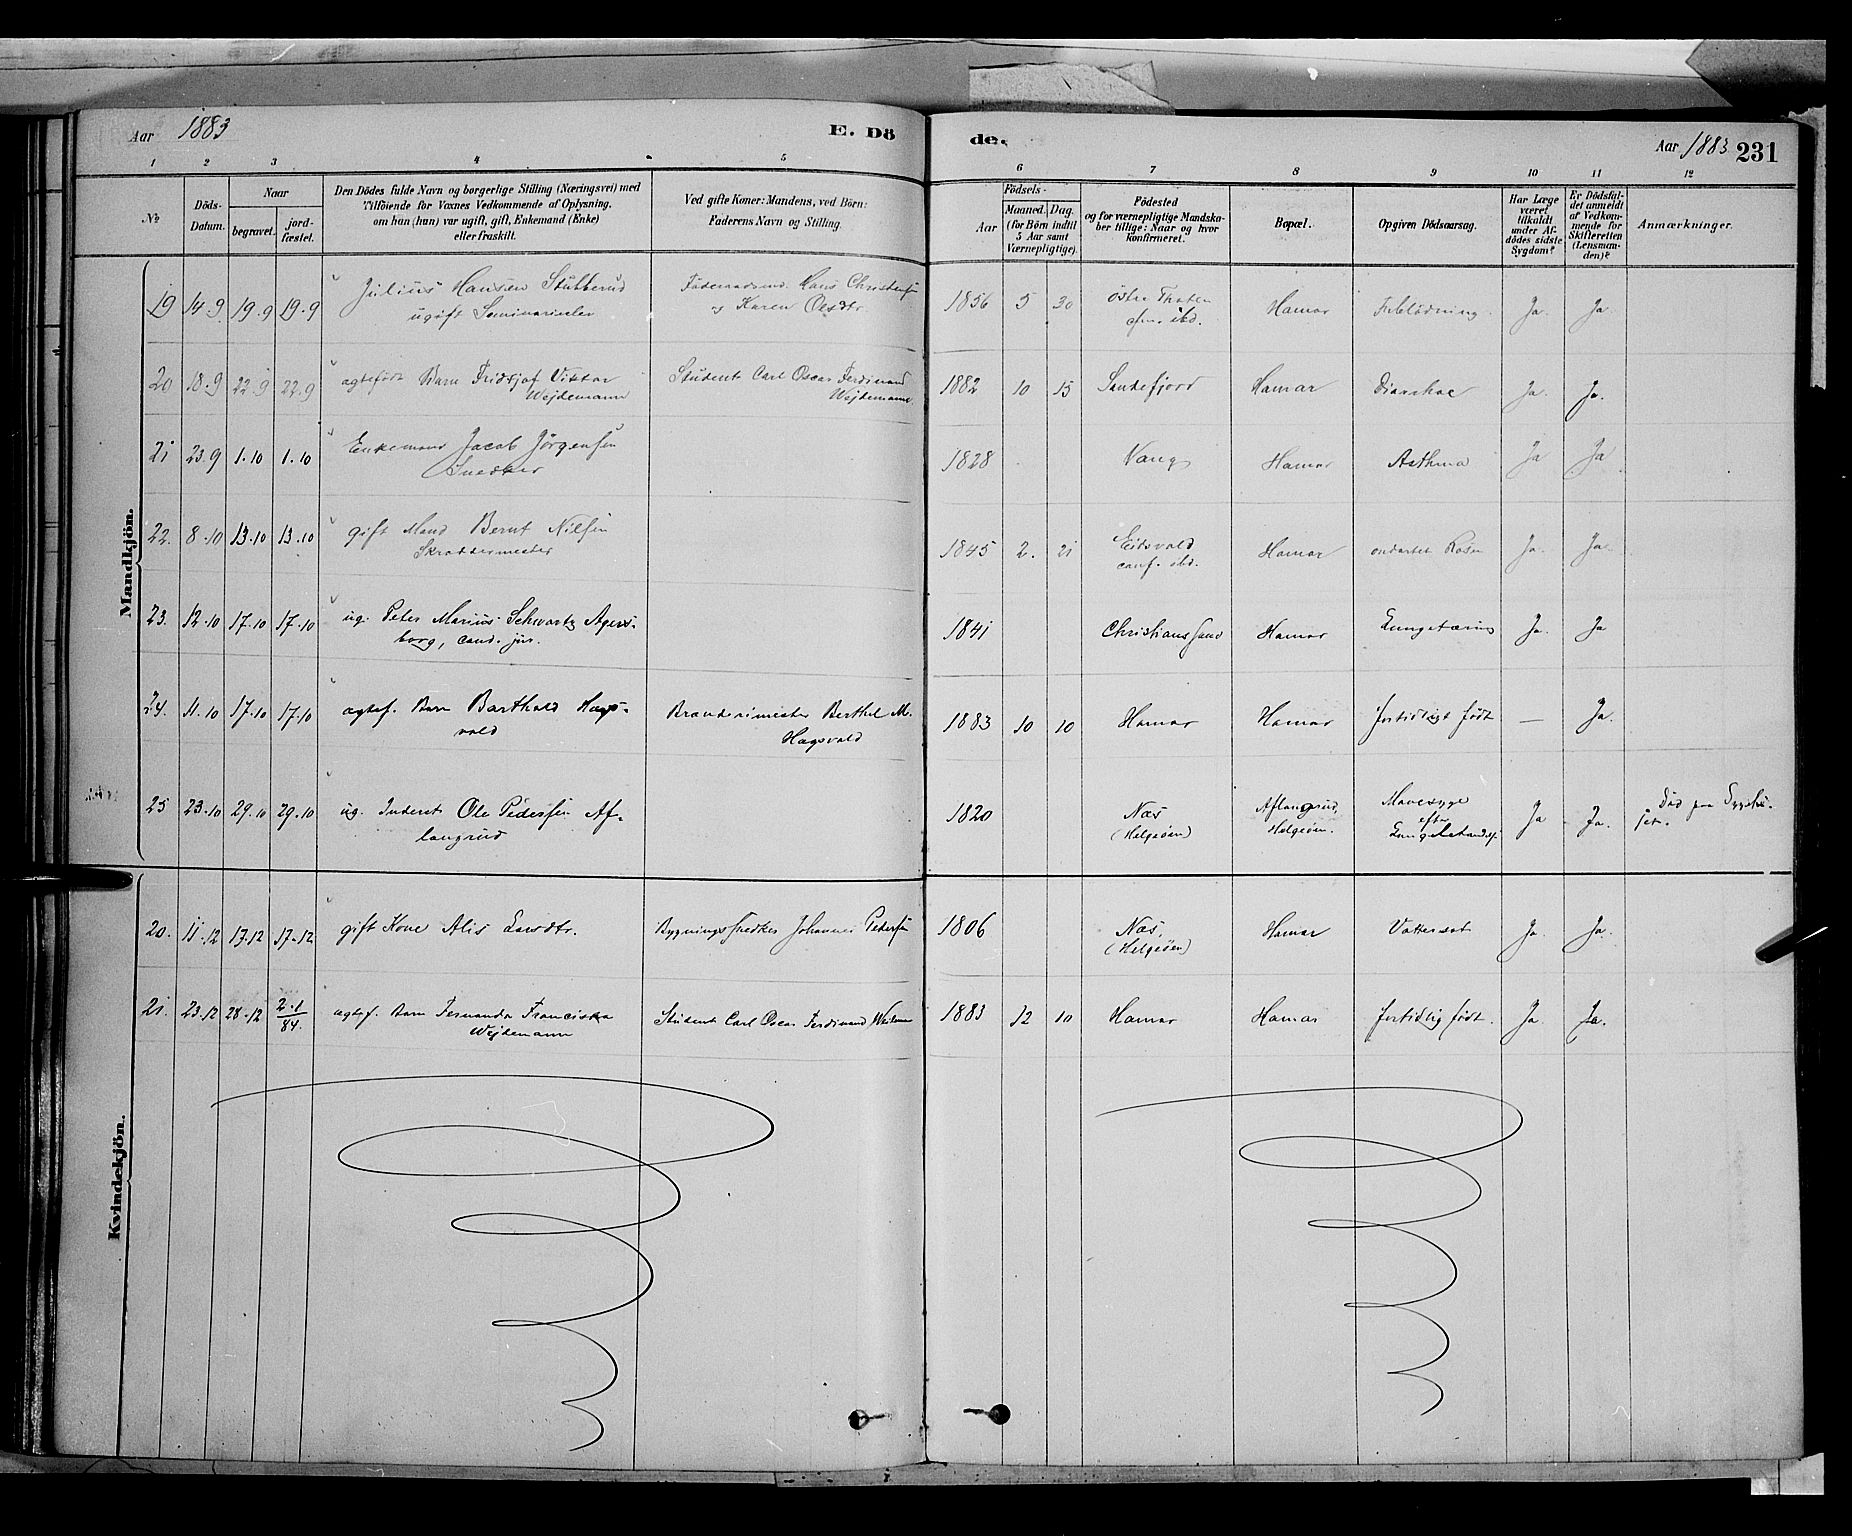 Aar 1883 E. Dö de. Aar 1883 231
1 2 3 4 5 6 7 8 9 10 11 12
No
Döds-Datum.
Naar
begravet.
jord-fæstet.
Den Dödes fulde Navn og borgerlige Stilling (Næringsvei) med
Tilföiende for Voxnes Vedkommende af Oplysning,
om han (hun) var ugift, gift, Enkemand (Enke)
eller fraskilt.
Ved gifte Koner: Mandens, ved Börn:
Faderens Navn og Stilling.
Födsels-
Aar
Maaned.
Dag.
(for Börn indtil
5 Aar samt
Værnepligtige).
Födested
og for værnepligtige Mandska-
ber tillige: Naar og hvor
konfirmeret.
Bopæl.
Opgiven Dödsaarsag.
Har Læge
været
tilkaldt
under Af-
dödes sidste
Sygdom?
Er Dödsfal-
det anmeldt
af Vedkom-
mende for
Skifteretten
(Lensman-
den)?
Anmærkninger.
Mandkjön.
19 14.9 19.9 19.9 Julius Hansen Stubberud Föderaadsmd. Hans Christensen 1856 5 30 östre Thoten Hamar Forblödning Ja. Ja.
ugift Seminarieelev og Karen Olsdtr. cfm. ibd.
20 18.9 22.9 22.9 ægtefödt Barn Fridtjof Viktor Student Carl Oscar Ferdinand 1882 10 15 Sandefjord Hamar Diarrhoe Ja. Ja.
Wejdemann Wejdemann.
21 23.9 1.10 1.10 Enkemand Jacob Jörgensen 1828 Vang Hamar Asthma Ja Ja
Snedker
22. 8.10 13.10 13.10 gift Mand Bernt Nilsen 1845 2. 21 Eidsvold Hamar ondartet Rosen Ja. Ja
Skræddermester conf. ibd.
23. 12.10 17.10 17.10 ug. Peter Marius Schwartz Agers- 1841 Christianssand Hamar Lungetæring Ja. Ja
borg, cand. jur.
24. 11.10 17.10 17.10 ægtef. Barn Barthold Hags- Brænderimester Berthel M. 1883 10 10 Hamar Hamar fortidligt födt — Ja.
vold Hagsvold
25 23.10 29.10 29.10 ug. Inderst Ole Pedersen Af- 1820 Næs Aflangrud, Mavesyge Ja Ja. Död paa Sygehu-
langrud (Helgeöen) Helgeöen. efter set.
Lungebetændelse
Kvindekjön.
20. 11.12 17.12 17.12 gift Kone Alis Larsdtr. Bygningssnedker Johannes Pedersen 1806 Næs, Hamar Vattersot Ja. Ja.
(Helgeöen)
21. 23.12 28.12 2.1/84. ægtef. Barn Fernanda Franciska Student Carl Oscar Ferdinand Wejdemann 1883 12 10 Hamar Hamar fortidlig födt. Ja Ja.
Wejdemann